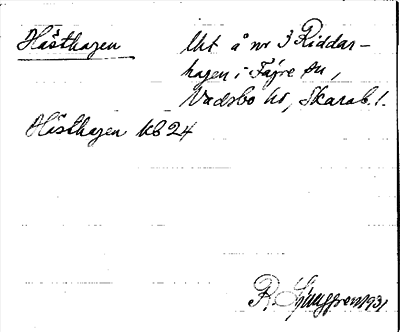 Hästhagen
Utt å nr 3 Riddar-
hagen i Fägre sn,
Vadsbo hd, Skarab. l.
Hästhagen kb 24
R. Ljunggren 1931